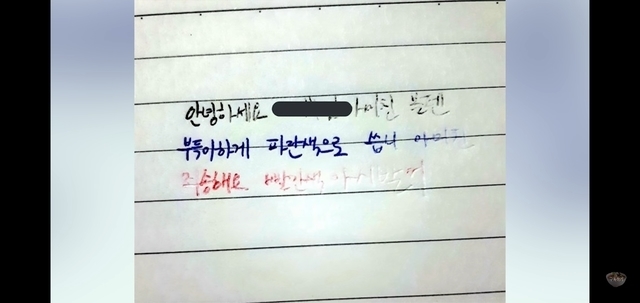 안녕하세요 아 미친 볼펜
부득이하게 파란색으로 씁니 아 미친
죄송해요 빨간색 아 시발